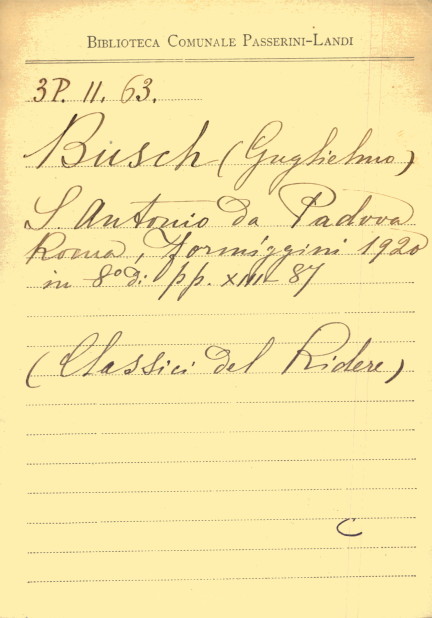 BIBLIOTECA COMUNALE PASSERINI-LANDI
3P. 11. 63.
Busch (Guglielmo)
S. Antonio da Padova
Roma, Formiggini 1920
in 8° di pp. XIII-87
(Classici del Ridere)
C